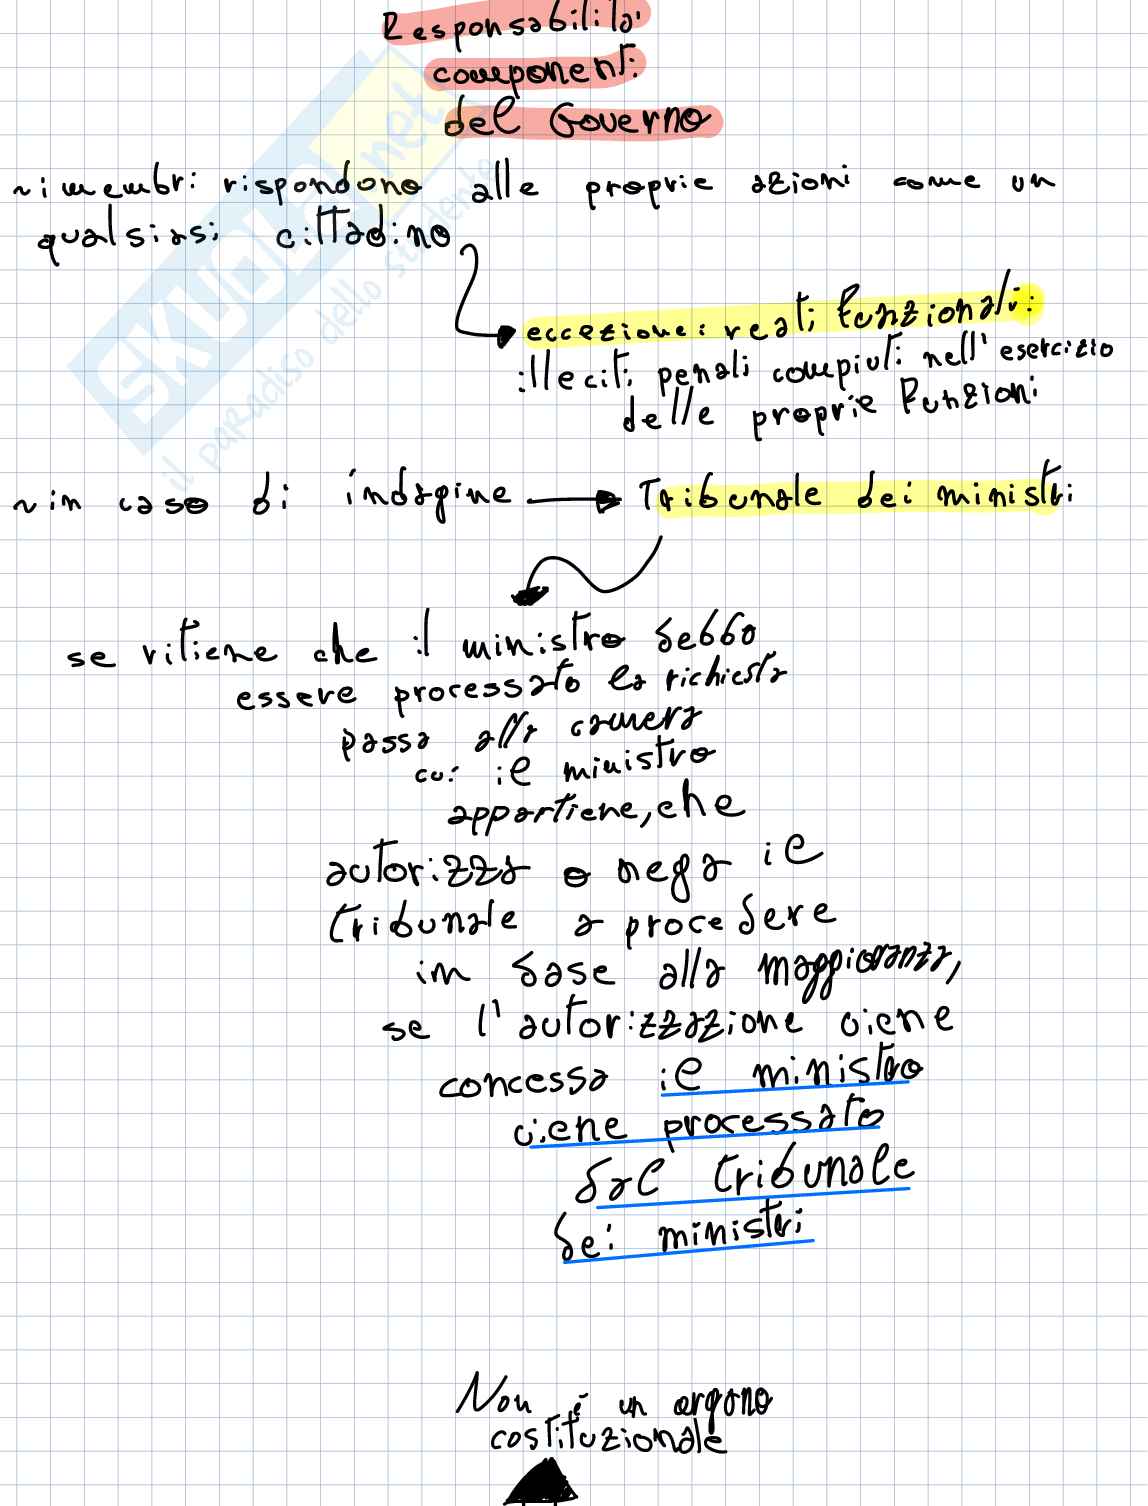 Responsabilità
componenti
del Governo
~ i membri rispondono alle proprie azioni come un
qualsiasi cittadino
eccezione: reati funzionali:
illeciti penali compiuti nell'esercizio
delle proprie funzioni
~ in caso di indagine → Tribunale dei ministri
se ritiene che il ministro debba
essere processato la richiesta
passa alla camera
cui il ministro
appartiene, che
autorizza o nega il
tribunale a procedere
in base alla maggioranza,
se l'autorizzazione viene
concessa il ministro
viene processato
dal tribunale
dei ministri
Non è un organo
costituzionale
SKUOLA.net
il paradiso dello studente